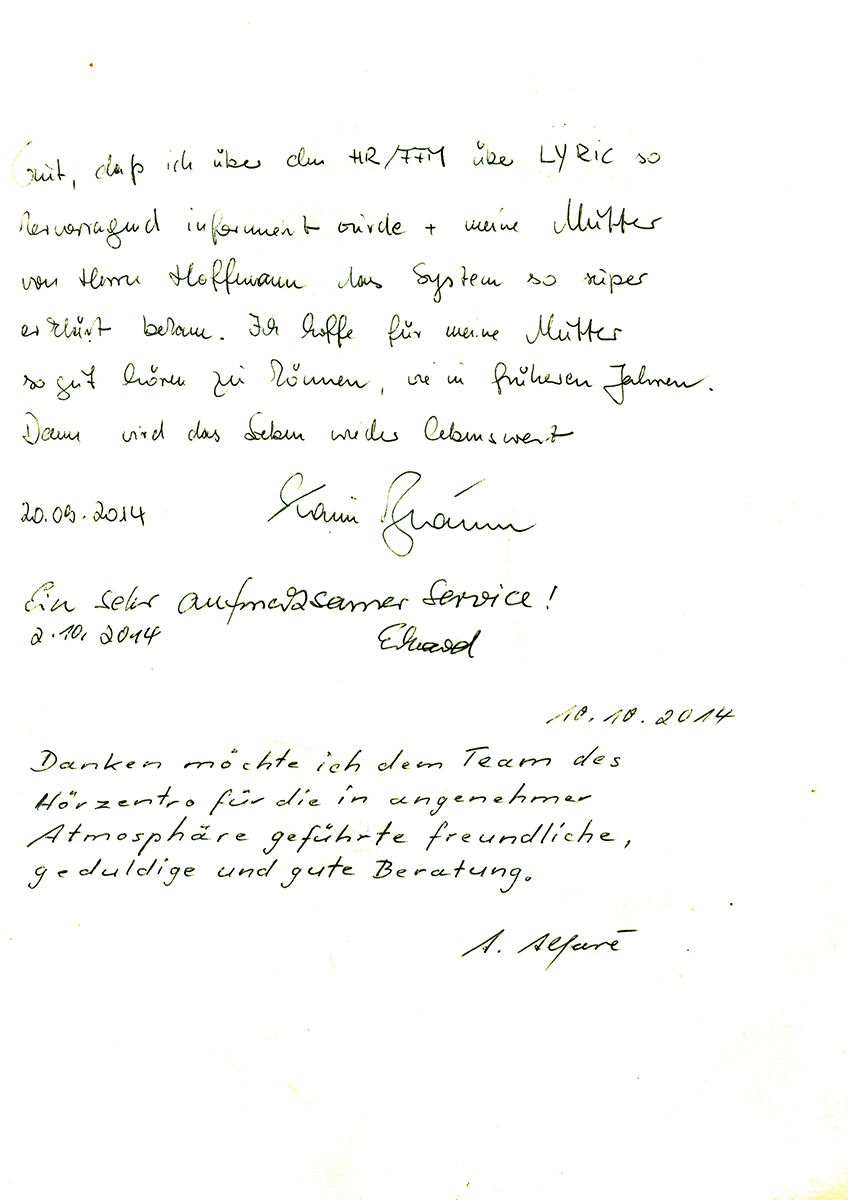 Gut, daß ich über den HR/FFM über LYRIC so
hervorragend informiert wurde + meine Mutter
von Herrn Hoffmann das System so super
erklärt bekam. Ich hoffe für meine Mutter
so gut hören zu können, wie in früheren Jahren.
Dann wird das Leben wieder lebenswert
20.09.2014
Ein sehr aufmerksamer Service!
2.10.2014
10.10.2014
Danken möchte ich dem Team des
Hörzentro für die in angenehmer
Atmosphäre geführte freundliche,
geduldige und gute Beratung.
A.